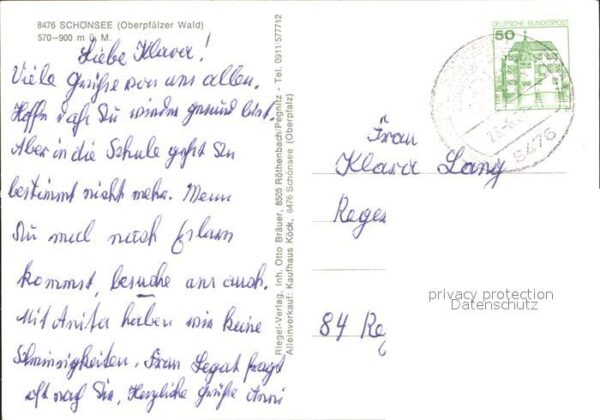 8476 SCHÖNSEE (Oberpfälzer Wald)
570–900 m ü. M.
Liebe Klara!
Viele Grüße von uns allen.
Hoffe daß Du wieder gesund bist.
Aber in die Schule gehst Du
bestimmt nicht mehr. Wenn
Du mal nach
kommst, besuche uns auch.
Mit Anita haben wir keine
Schwierigkeiten. Frau Legat fragt
oft nach Dir. Herzliche Grüße Anni
Riegel-Verlag, Inh. Otto Bräuer, 8505 Röthenbach/Pegnitz - Tel. 0911/577712
Alleinverkauf: Kaufhaus Köck, 8476 Schönsee (Oberpfalz)
DEUTSCHE BUNDESPOST
50
8476
Frau
Klara Lang
Regen
84 Reg
privacy protection
Datenschutz